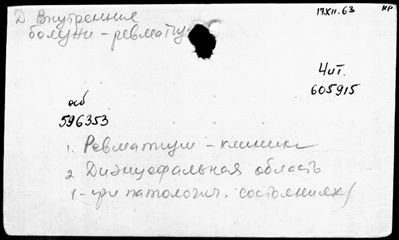 Д. Внутренние
17.XII.63
КР
болезни - ревматизм
Чит.
605915
аб
596353
1. Ревматизм - клиника
2 Диэнцефальная область
1 - при патологич. состояниях)